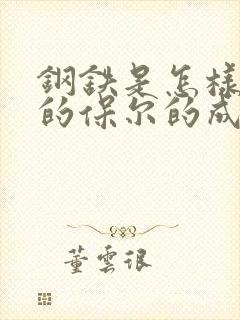 鋼鉄是怎樣
的保尔的成
董雲很